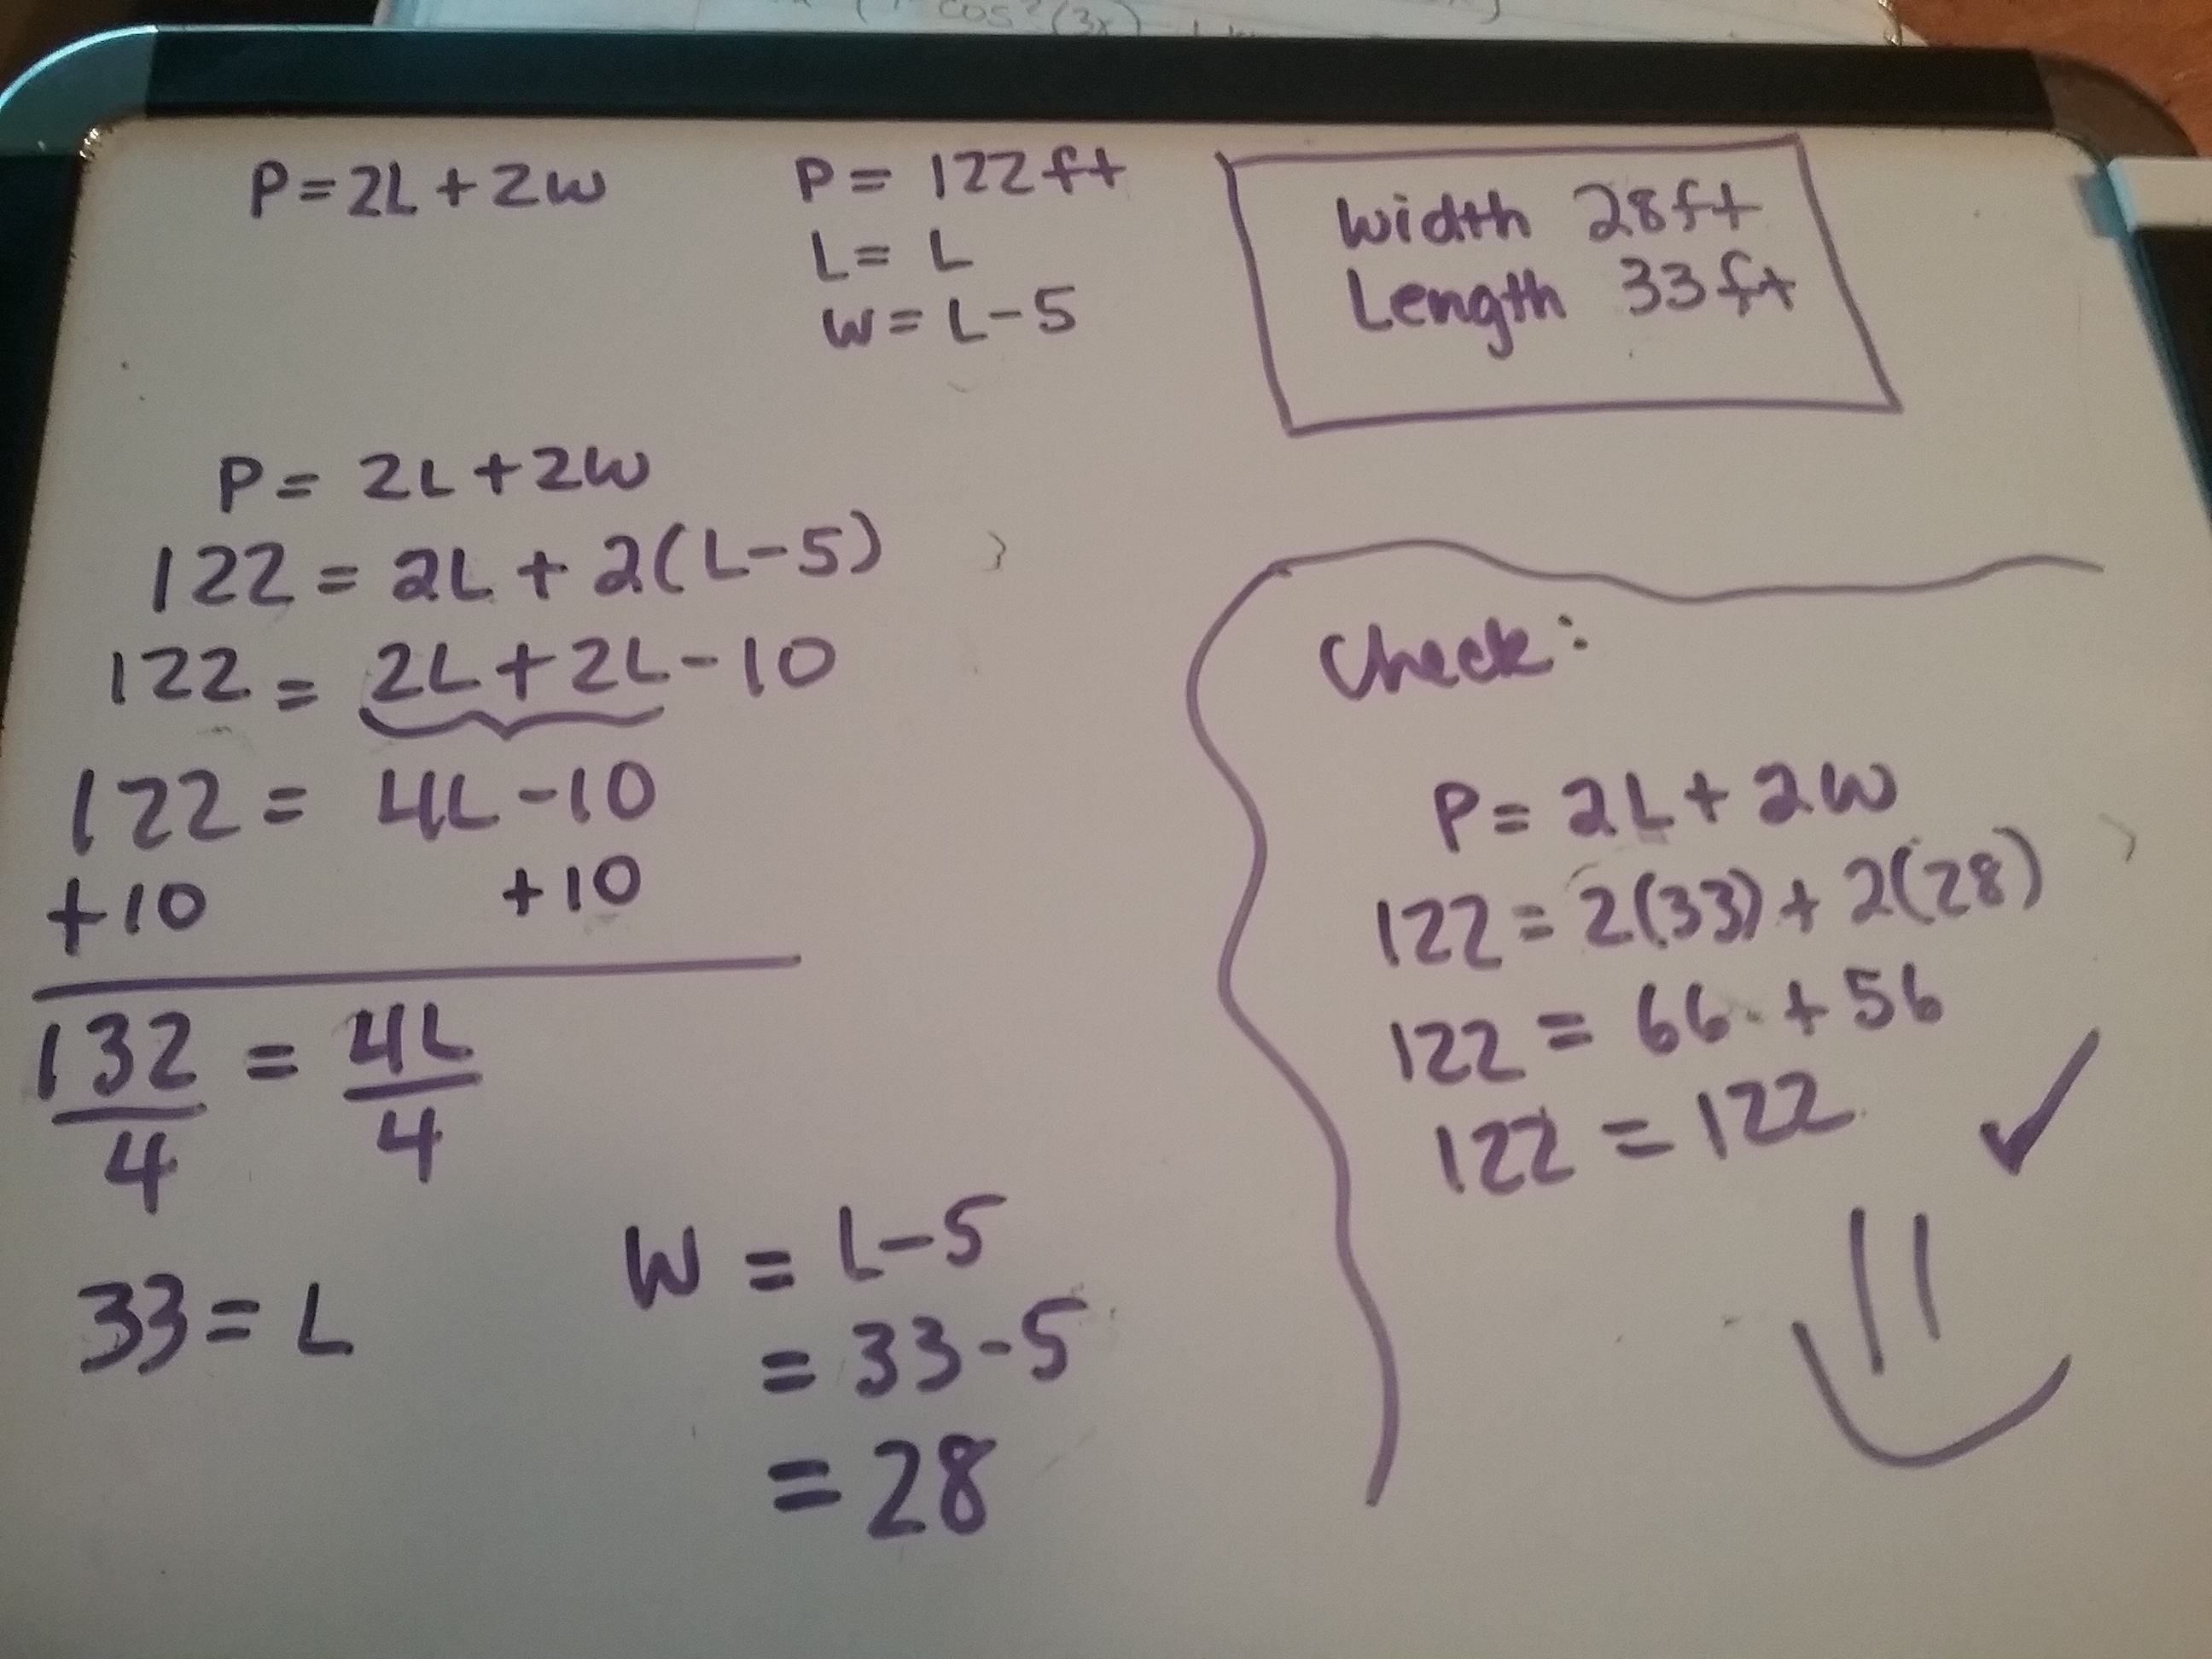 cos²(3x)
P=2L+2W
P= 122ft
L= L
W= L-5
Width 28ft
Length 33ft
P= 2L+2W
122= 2L+2(L-5)
122= 2L+2L-10
122= 4L-10
+10 +10
132/4 = 4L/4
33= L
W = L-5
= 33-5
= 28
Check:
P= 2L+2W
122= 2(33)+2(28)
122= 66+56
122=122 ✓